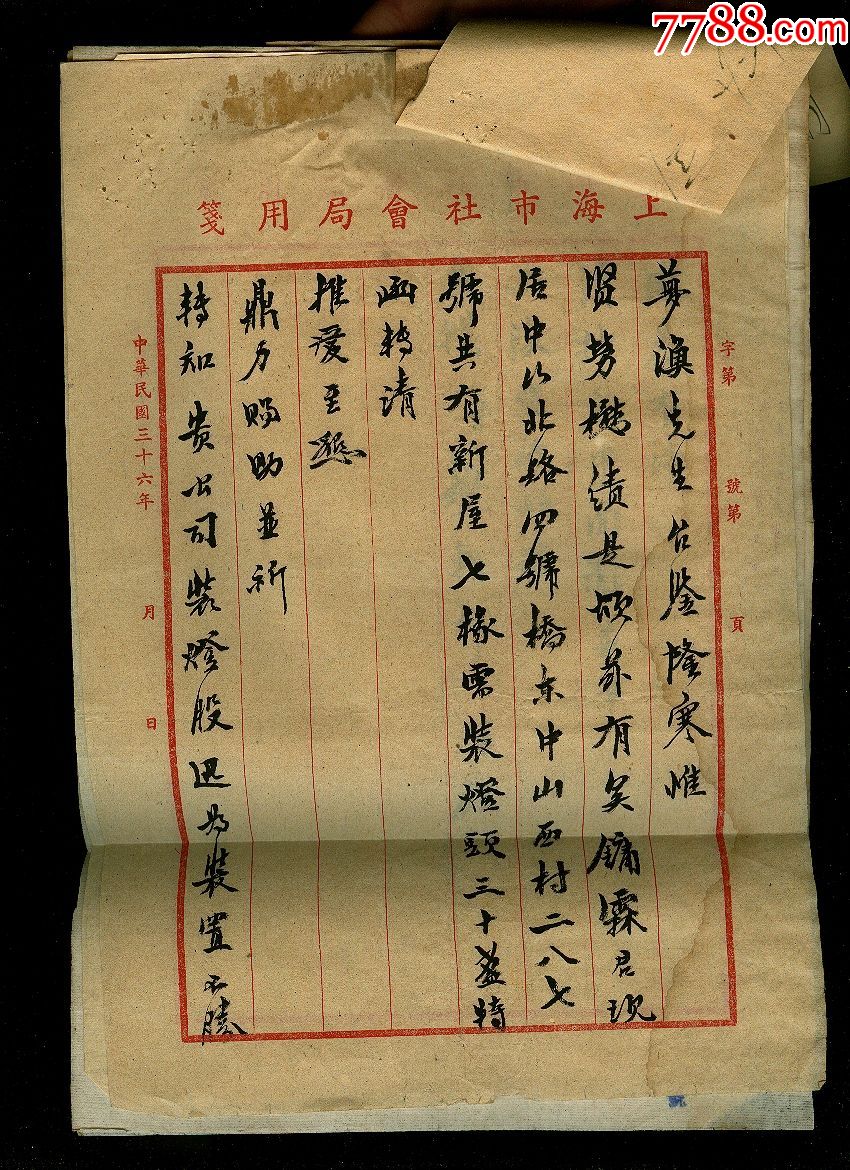 7788.com
上海市社會局用箋
字第　號第　頁
夢漁先生台鑒隆寒惟
賢勞懋績是頌茲有吳鏞霖君現
居中山北路四號橋東中山西村二八七
號共有新屋七椽需裝燈頭三十盞特
函轉清
推愛至懇
鼎力賜助並祈
轉知貴公司裝燈股迅為裝置不勝
中華民國三十六年　月　日